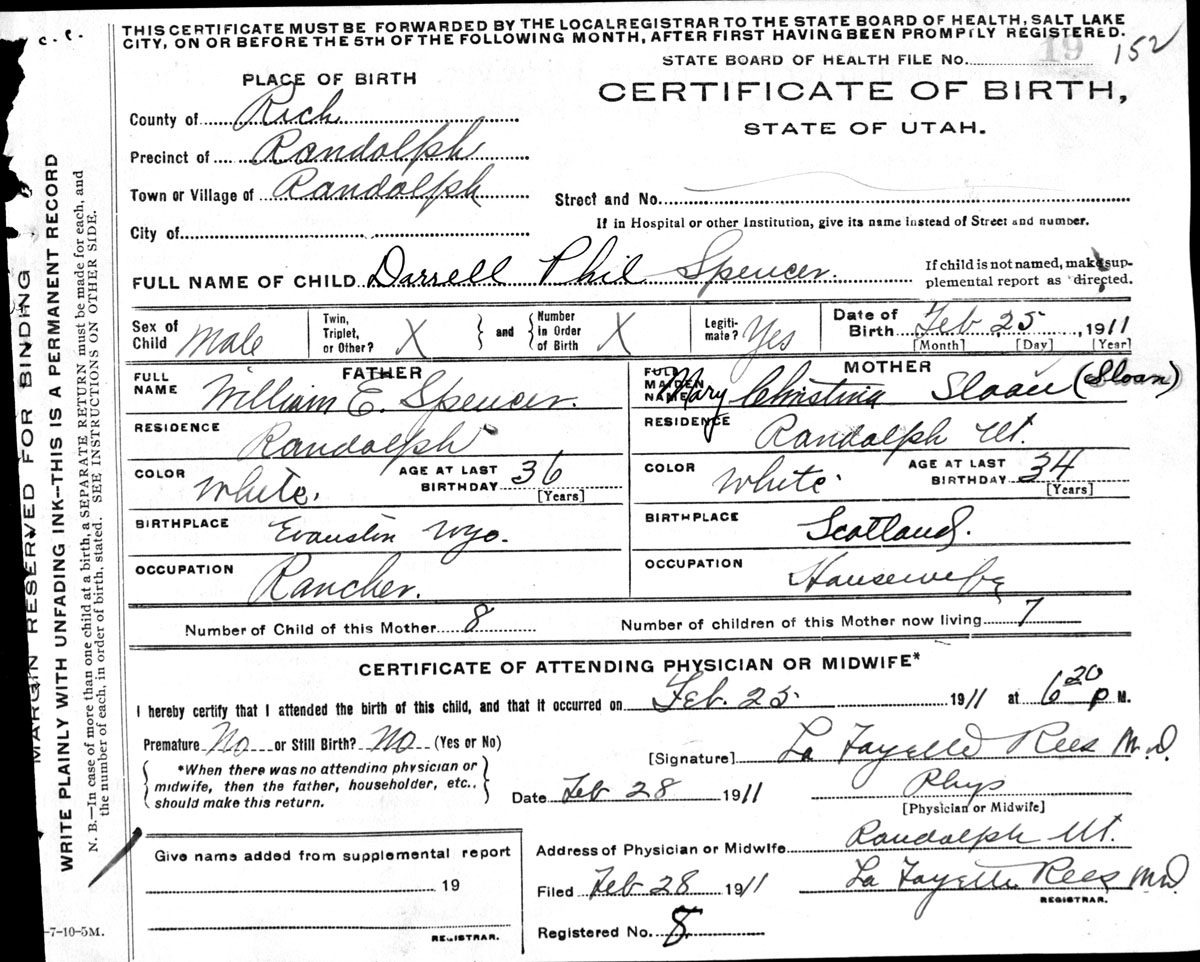 c. c.
THIS CERTIFICATE MUST BE FORWARDED BY THE LOCAL REGISTRAR TO THE STATE BOARD OF HEALTH, SALT LAKE
CITY, ON OR BEFORE THE 5TH OF THE FOLLOWING MONTH, AFTER FIRST HAVING BEEN PROMPTLY REGISTERED.
STATE BOARD OF HEALTH FILE No. 19 152
PLACE OF BIRTH
CERTIFICATE OF BIRTH,
STATE OF UTAH.
County of Rich
Precinct of Randolph
Town or Village of Randolph
Street and No.
If in Hospital or other Institution, give its name instead of Street and number.
City of
FULL NAME OF CHILD Darrell Phil Spencer.
If child is not named, make sup-
plemental report as directed.
Sex of Child Male
Twin, Triplet, or Other? X
and
Number in Order of Birth X
Legiti-mate? Yes
Date of Birth Feb 25, 1911
[Month] [Day] [Year]
FATHER
FULL NAME William E. Spencer.
RESIDENCE Randolph
COLOR White.
AGE AT LAST BIRTHDAY 36
[Years]
BIRTHPLACE Evanston Wyo.
OCCUPATION Rancher.
MOTHER
FULL MAIDEN NAME Mary Christina Sloan (Sloan)
RESIDENCE Randolph Ut.
COLOR White.
AGE AT LAST BIRTHDAY 34
[Years]
BIRTHPLACE Scotland.
OCCUPATION Housewife
Number of Child of this Mother 8
Number of children of this Mother now living 7
CERTIFICATE OF ATTENDING PHYSICIAN OR MIDWIFE*
I hereby certify that I attended the birth of this child, and that it occurred on Feb. 25 1911 at 6 20 P M.
Premature No or Still Birth? No (Yes or No)
*When there was no attending physician or
midwife, then the father, householder, etc.,
should make this return.
[Signature] La Fayette Rees M.D.
Date Feb 28 1911
Phys
[Physician or Midwife]
Address of Physician or Midwife Randolph Ut.
Filed Feb 28 1911 La Fayette Rees M.D.
REGISTRAR.
Registered No. 8
Give name added from supplemental report
19
REGISTRAR.
MARGIN RESERVED FOR BINDING
WRITE PLAINLY WITH UNFADING INK--THIS IS A PERMANENT RECORD
N. B.—In case of more than one child at a birth, a SEPARATE RETURN must be made for each, and
the number of each, in order of birth, stated. SEE INSTRUCTIONS ON OTHER SIDE.
-7-10-5M.